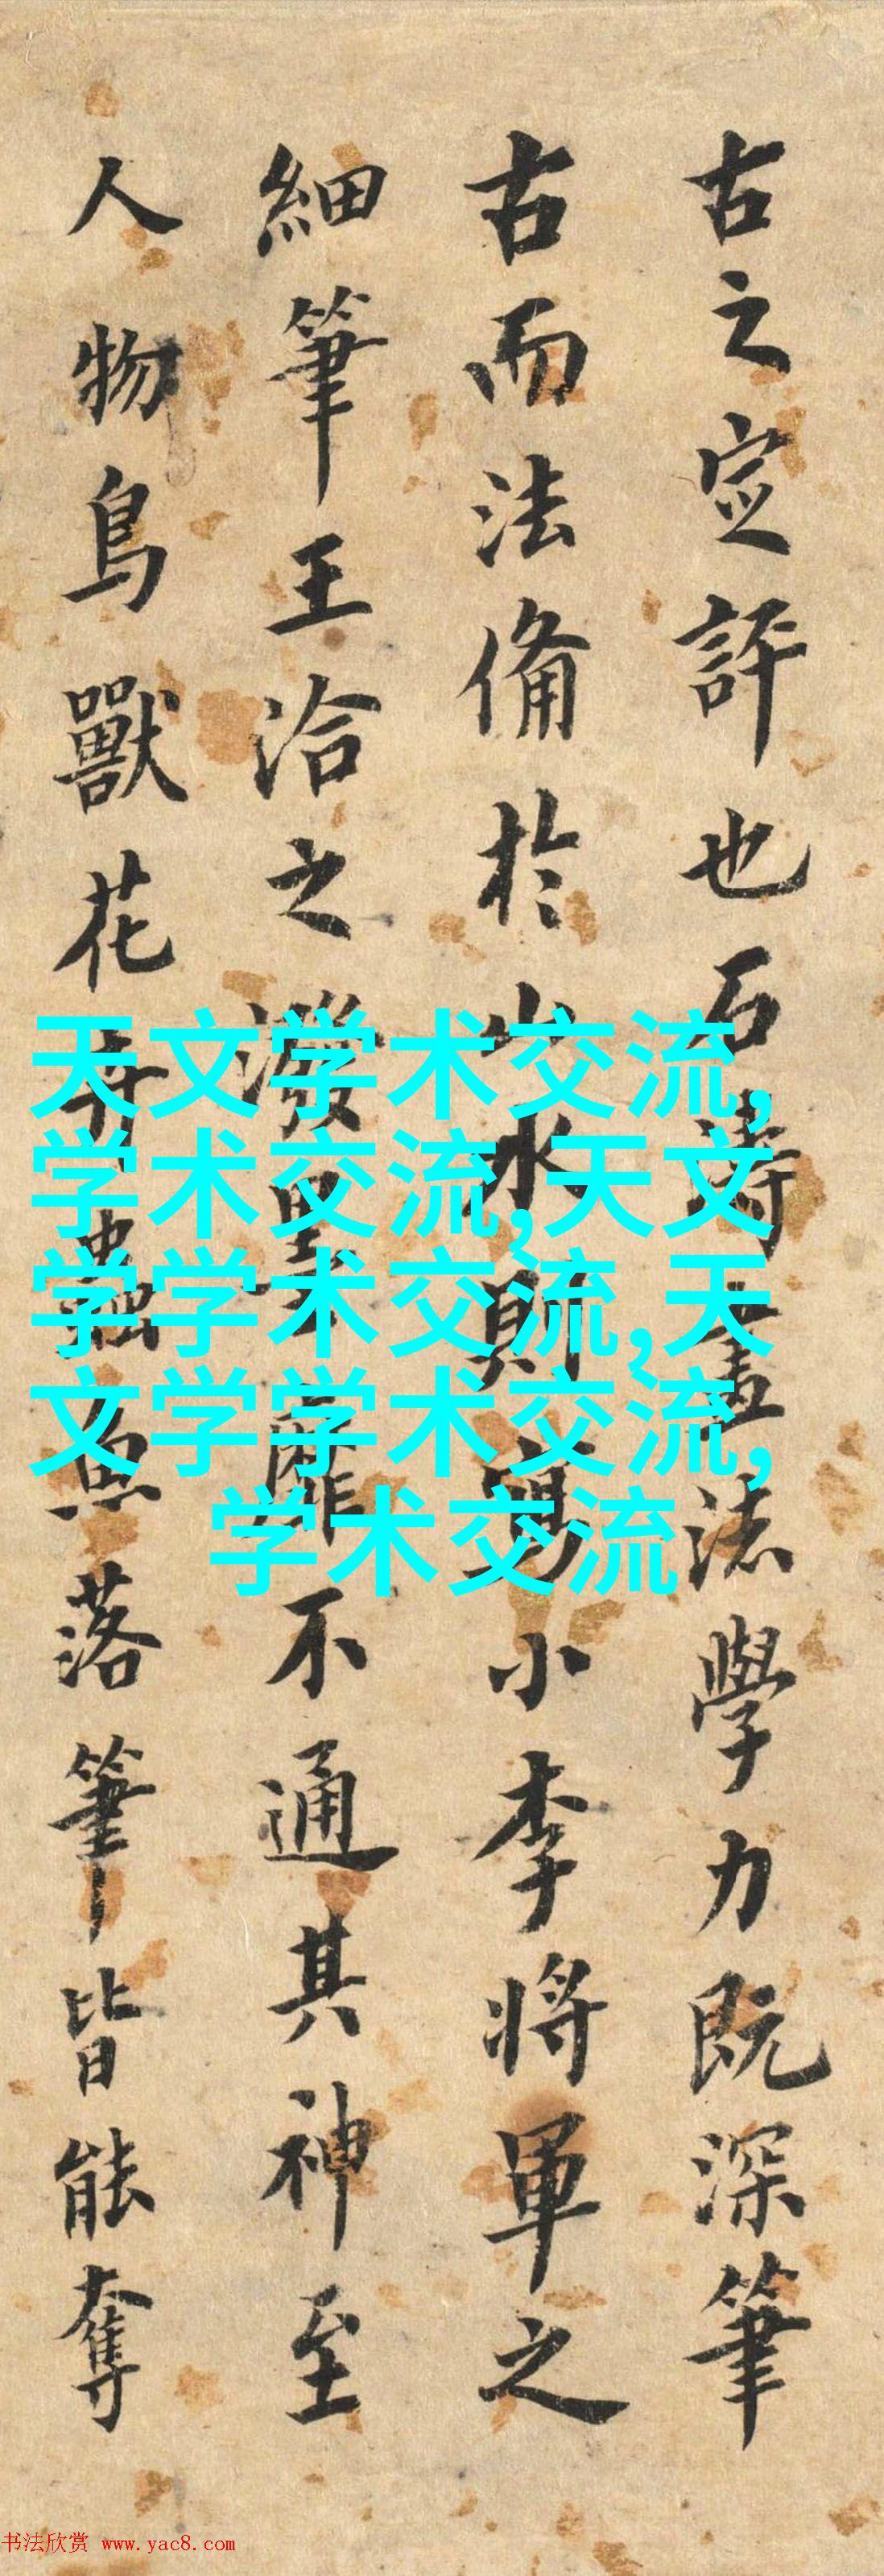 古之定評也石濤畫法學力既深筆
古而法備於山水則寫小李將軍之
細筆王洽之潑墨靡不通其神至
人物鳥獸花卉蟲魚落筆皆能奪
天文学术交流,
学术交流,天文
学学术交流,天
文学学术交流,
学术交流
书法欣赏 www.yac8.com